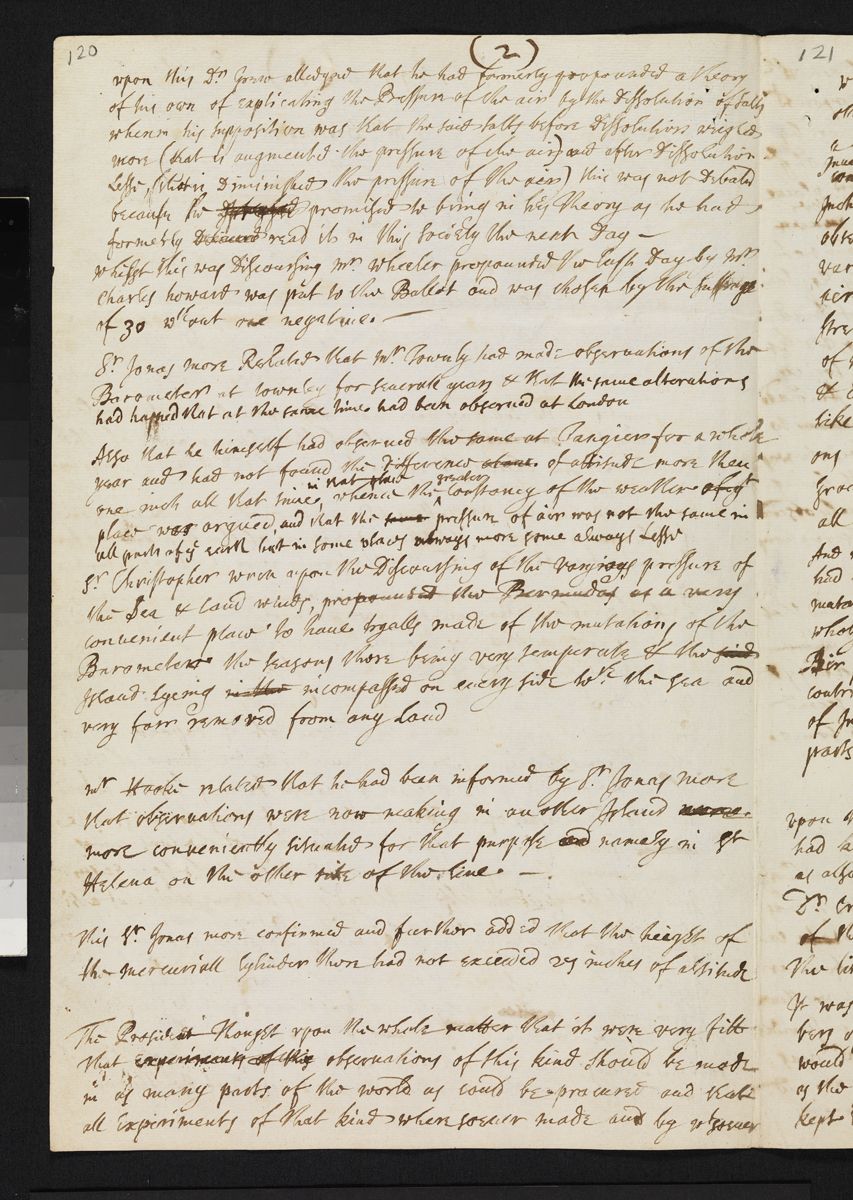 120
(2)
121
upon this Dr. Grew alledged that he had formerly propounded a theory
of his own of explicating the Pressure of the air by the Dissolution of salts
wherein his supposition was that the said salts before Dissolution weighed
more (that is augmented the pressure of the air) and after Dissolution
Lesse, (that is Diminished the pressure of the air) this was not Debated
because he promised to bring in his theory as he had
formerly read it in this society the next Day —
whilst this was Discoursing Mr. wheeler propounded the last Day by Mr.
Charles howard was put to the Ballot and was chosen by the suffrage
of 30 wthout one negative. —
Sr. Jonas more Related that Mr. Townly had made observations of the
Barometer at townley for severall years & that the same alterations
had hapned that at the same time had been observed at London
Also that he himself had observed the same at Tangier for a whole
year and had not found the Difference of altitude more than
one inch all that time, in that place whence the greater constancy of the weather of yt
place was argued, and that the pressure of air was not the same in
all parts of ye earth but in some places always more some always Lesse
Sr. Christopher wren upon the Discoursing of the varyious pressure of
the Sea & Land winds, propounded the Bermudas as a very
convenient place to have tryalls made of the mutations of the
Barometer the seasons there being very temperate & the said
Island Lyeing in the incompassed on every side wth. the sea and
very farr removed from any Land
Mr Hooke related that he had been informed by Sr. Jonas more
that observations were now making in another Island
more conveniently situated for that purpose and namely in St
Helena on the other side of the line. —
this Sr. Jonas more confirmed and further added that the height of
the mercuriall Cylinder there had not exceeded 29 inches of altitude
The President thought upon the whole matter that it were very fitt
that experiments of this observations of this kind should be made
in as many parts of the world as could be procured and that
all Experiments of that kind where soever made and by wt soever
upon
had
as also
Dr.
of
the
It was
very
would
as the
kept